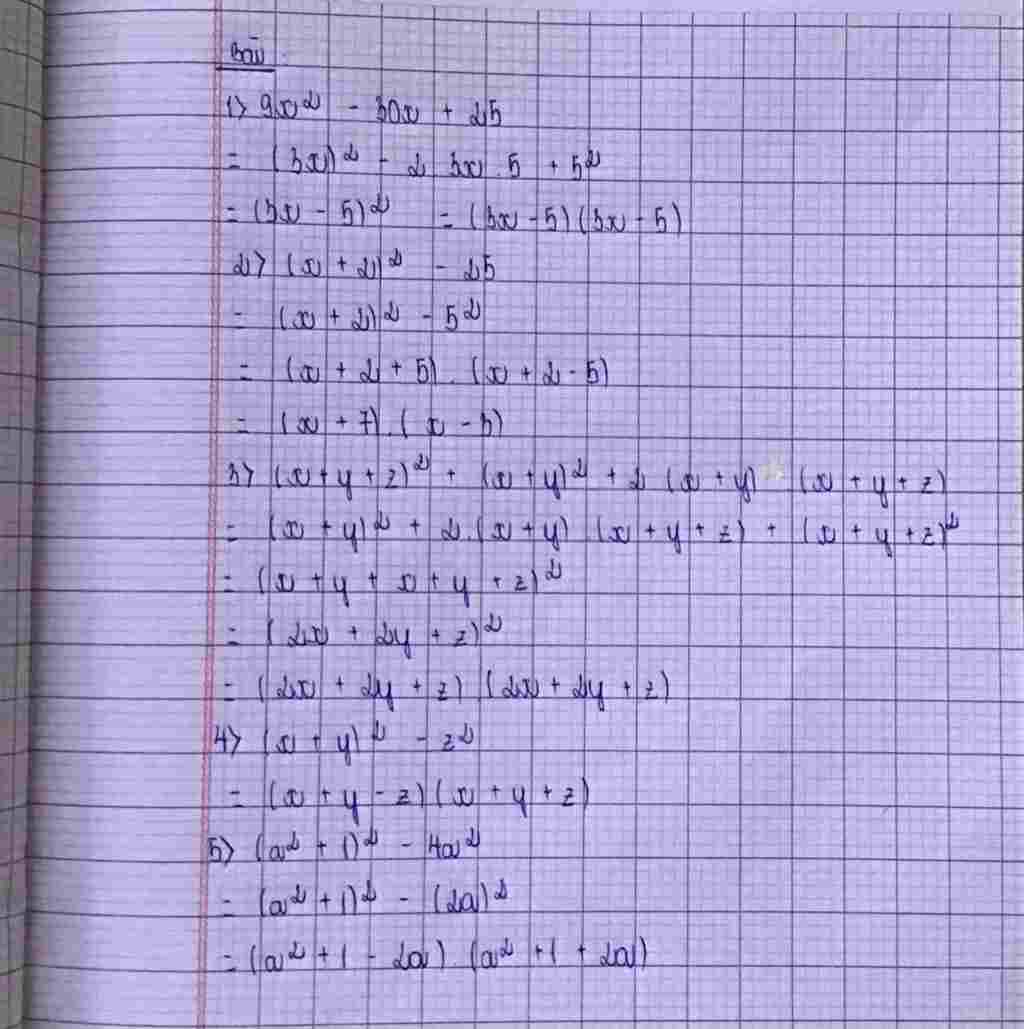 Bài :
1) 9x² - 30x + 25
= (3x)² - 2 3x . 5 + 5²
= (3x - 5)² = (3x - 5) (3x - 5)
2) (x + 2)² - 25
= (x + 2)² - 5²
= (x + 2 + 5) . (x + 2 - 5)
= (x + 7) . (x - 3)
3) (x + y + z)² + (x + y)² + 2 (x + y) (x + y + z)
= (x + y)² + 2 . (x + y) (x + y + z) + (x + y + z)²
= (x + y + x + y + z)²
= (2x + 2y + z)²
= (2x + 2y + z) (2x + 2y + z)
4) (x + y)² - z²
= (x + y - z) (x + y + z)
5) (a² + 1)² - 4a²
= (a² + 1)² - (2a)²
= (a² + 1 - 2a) . (a² + 1 + 2a)